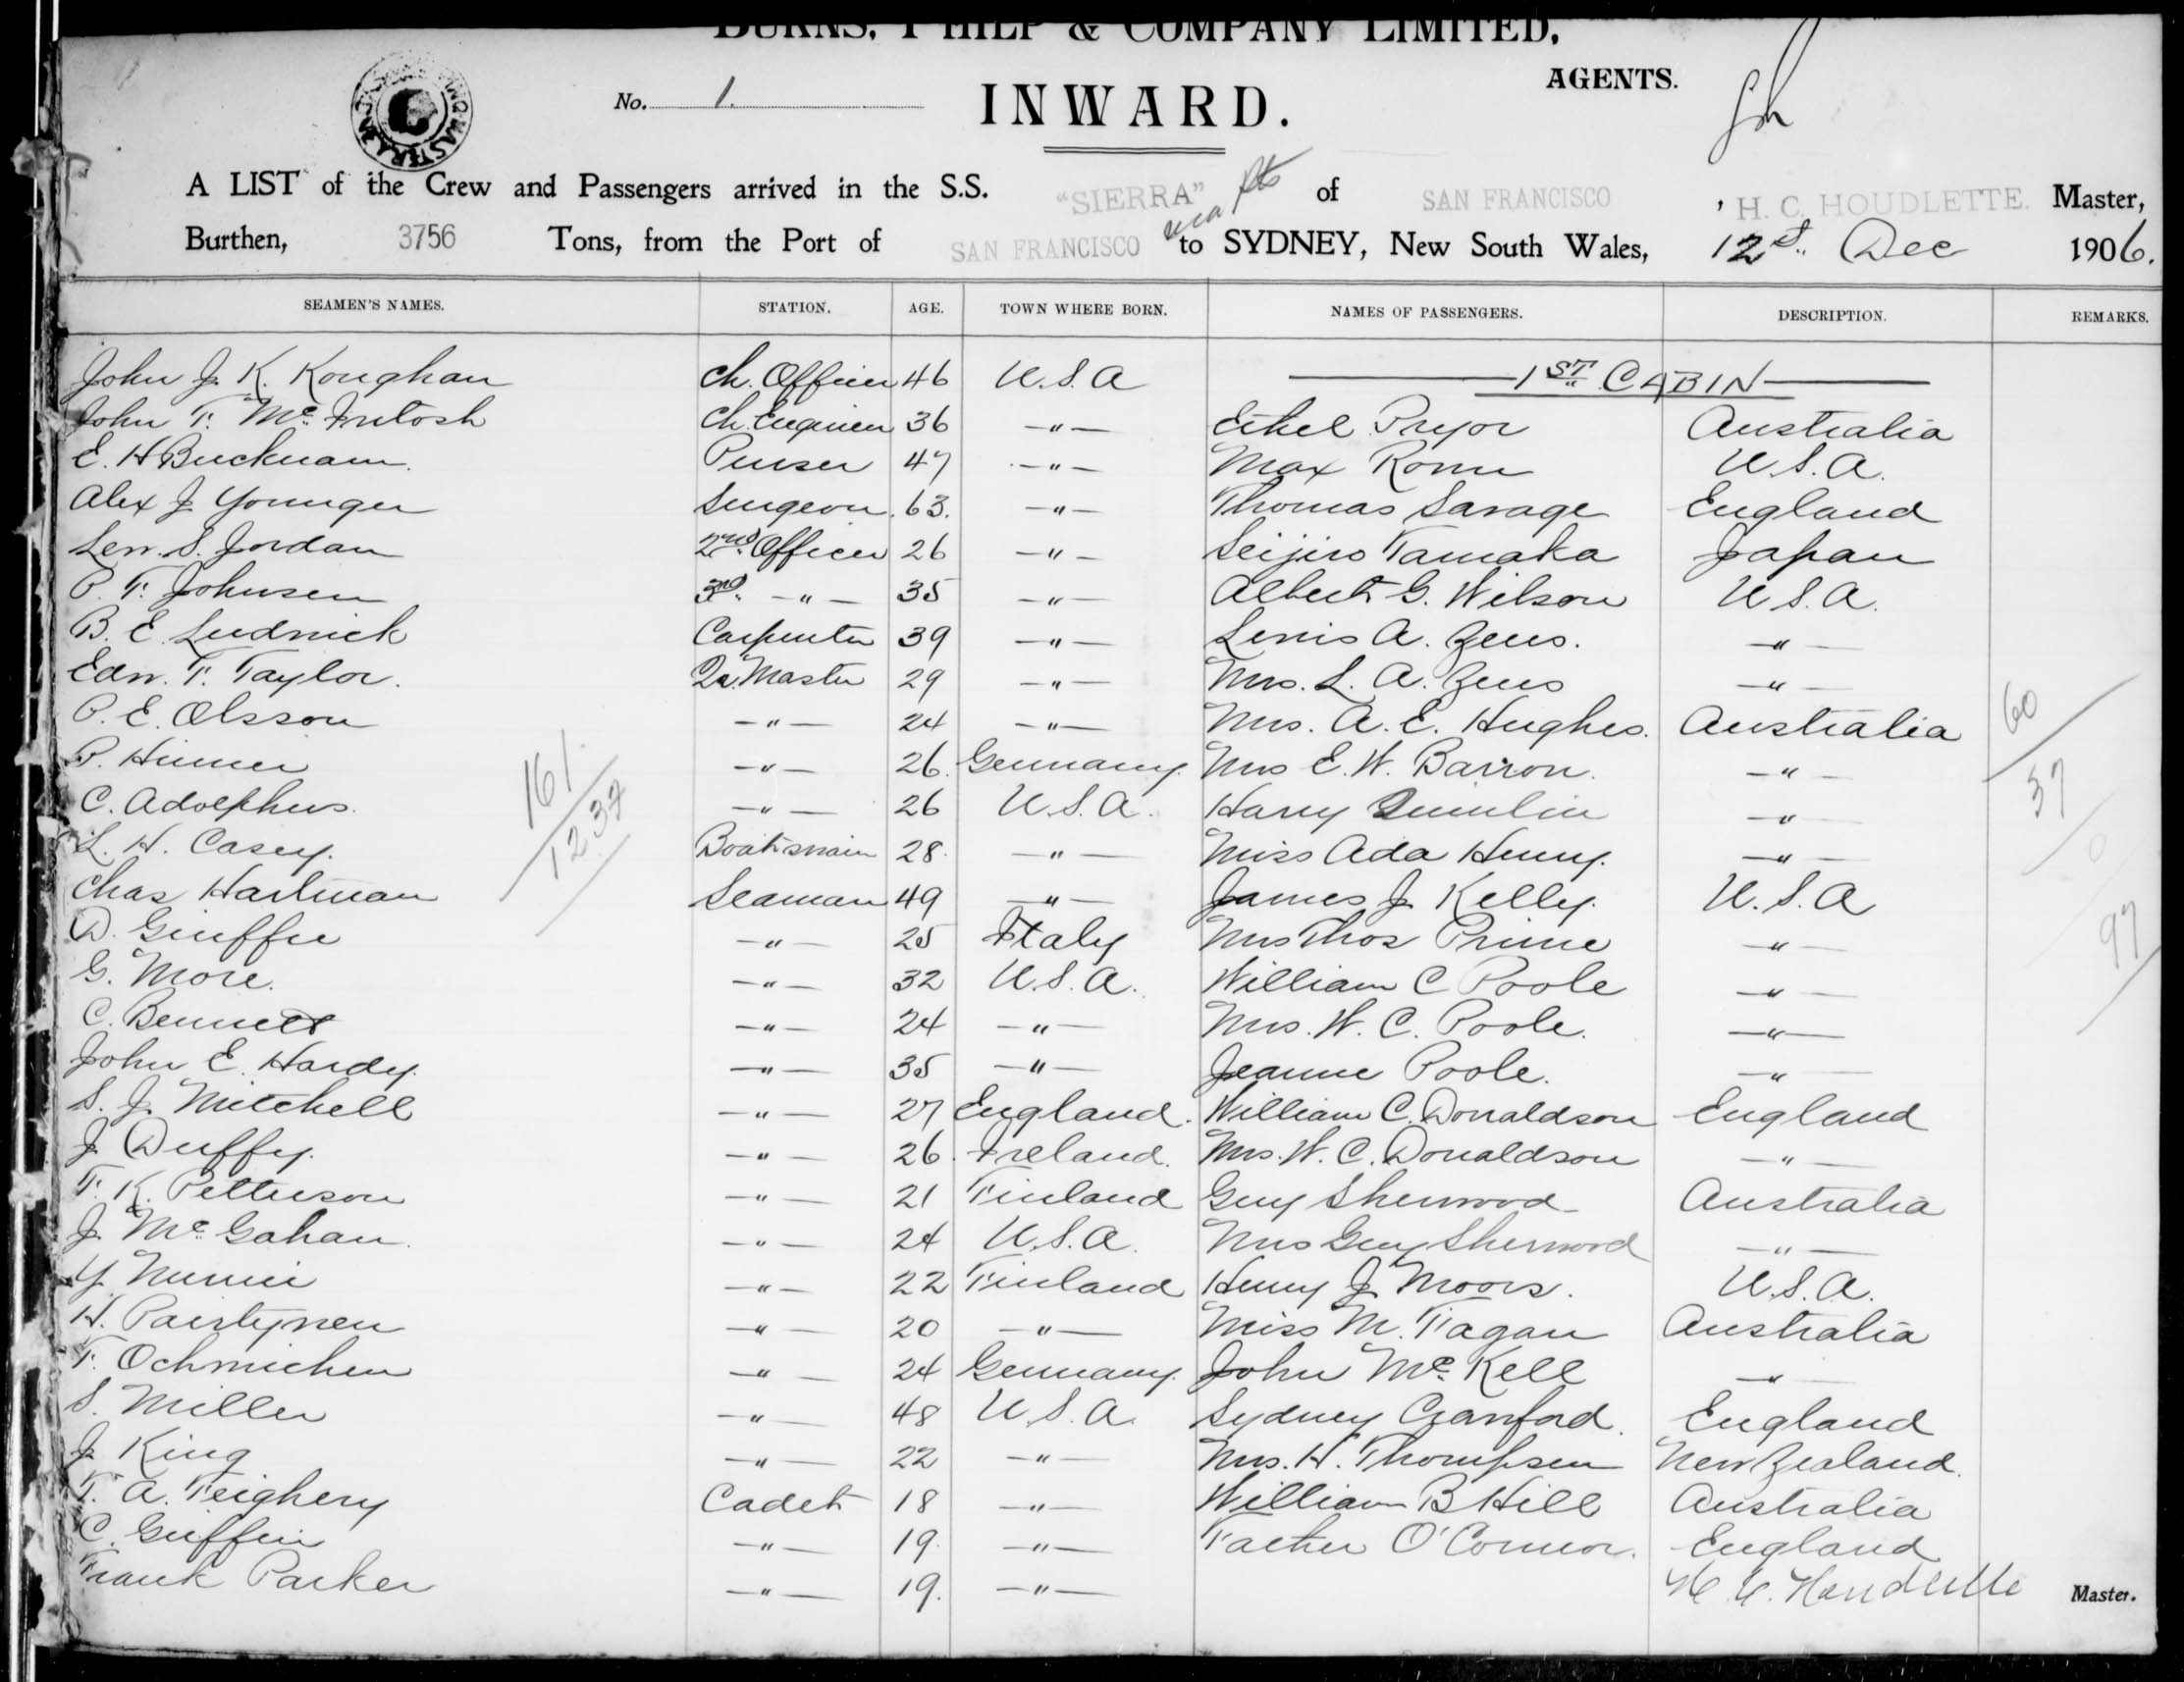 BURNS, PHILP & COMPANY LIMITED,
AGENTS.
No. 1.
INWARD.
A LIST of the Crew and Passengers arrived in the S.S. "SIERRA" of SAN FRANCISCO, H. C. HOUDLETTE. Master,
Burthen, 3756 Tons, from the Port of SAN FRANCISCO via pts to SYDNEY, New South Wales, 12th Dec 1906.
SEAMEN'S NAMES. STATION. AGE. TOWN WHERE BORN. NAMES OF PASSENGERS. DESCRIPTION. REMARKS.
John J. K. Koughan Ch. Officer 46 U.S.A 1ST CABIN
John F. McIntosh Ch. Engineer 36 -"- Ethel Pryor Australia
E. H Bucknam. Purser 47 -"- Max Romer U.S.A.
Alex J Younger Surgeon. 63. -"- Thomas Savage England
Len. S. Jordan 2nd Officer 26 -"- Seijiro Tamaka Japan
P. F. Johnsen 3rd. -"- 35 -"- Albert G. Wilson U.S.A.
B. E. Ludwick Carpenter 39 -"- Lewis A. Zeus. -"-
Edw. F. Taylor. Qr. Master 29 -"- Mrs. L. A. Zeus -"-
P. E. Olsson -"- 24 -"- Mrs. A. E. Hughes. Australia
P. Hiemer -"- 26. Germany. Mrs E. W. Barron. -"-
C. Adolphus. -"- 26 U.S.A. Harry Quinlin -"-
L. H. Casey. Boatswain 28. -"- Miss Ada Henry. -"-
Chas Hartman Seaman 49 -"- James J Kelly. U.S.A
D. Giuffre -"- 25 Italy Mrs Thos Prime -"-
G. More. -"- 32 U.S.A. William C Poole -"-
C. Bennett -"- 24 -"- Mrs. W. C. Poole. -"-
John E. Hardy. -"- 35 -"- Jeanne Poole. -"-
S. J. Mitchell -"- 27 England. William C. Donaldson England
J Duffy. -"- 26. Ireland. Mrs. W. C. Donaldson -"-
F. K. Petterson -"- 21 Finland Guy Sherwood Australia
J. McGahan. -"- 24 U.S.A. Mrs Guy Sherwood -"-
Y. Nurmi -"- 22 Finland Henry J Moors. U.S.A.
H. Pairtynen -"- 20 -"- Miss M. Fagan Australia
F. Ochmichen -"- 24 Germany. John McKell -"-
S. Miller -"- 48 U.S.A. Sydney Cranford. England
J King -"- 22 -"- Mrs. H. Thompsen New Zealand.
F. A. Feighery Cadet 18 -"- William B Hill Australia
C. Griffin -"- 19. -"- Father O'Connor. England
Frank Parker -"- 19. -"- H. C. Houdlette Master.
161
1237
60
37
97